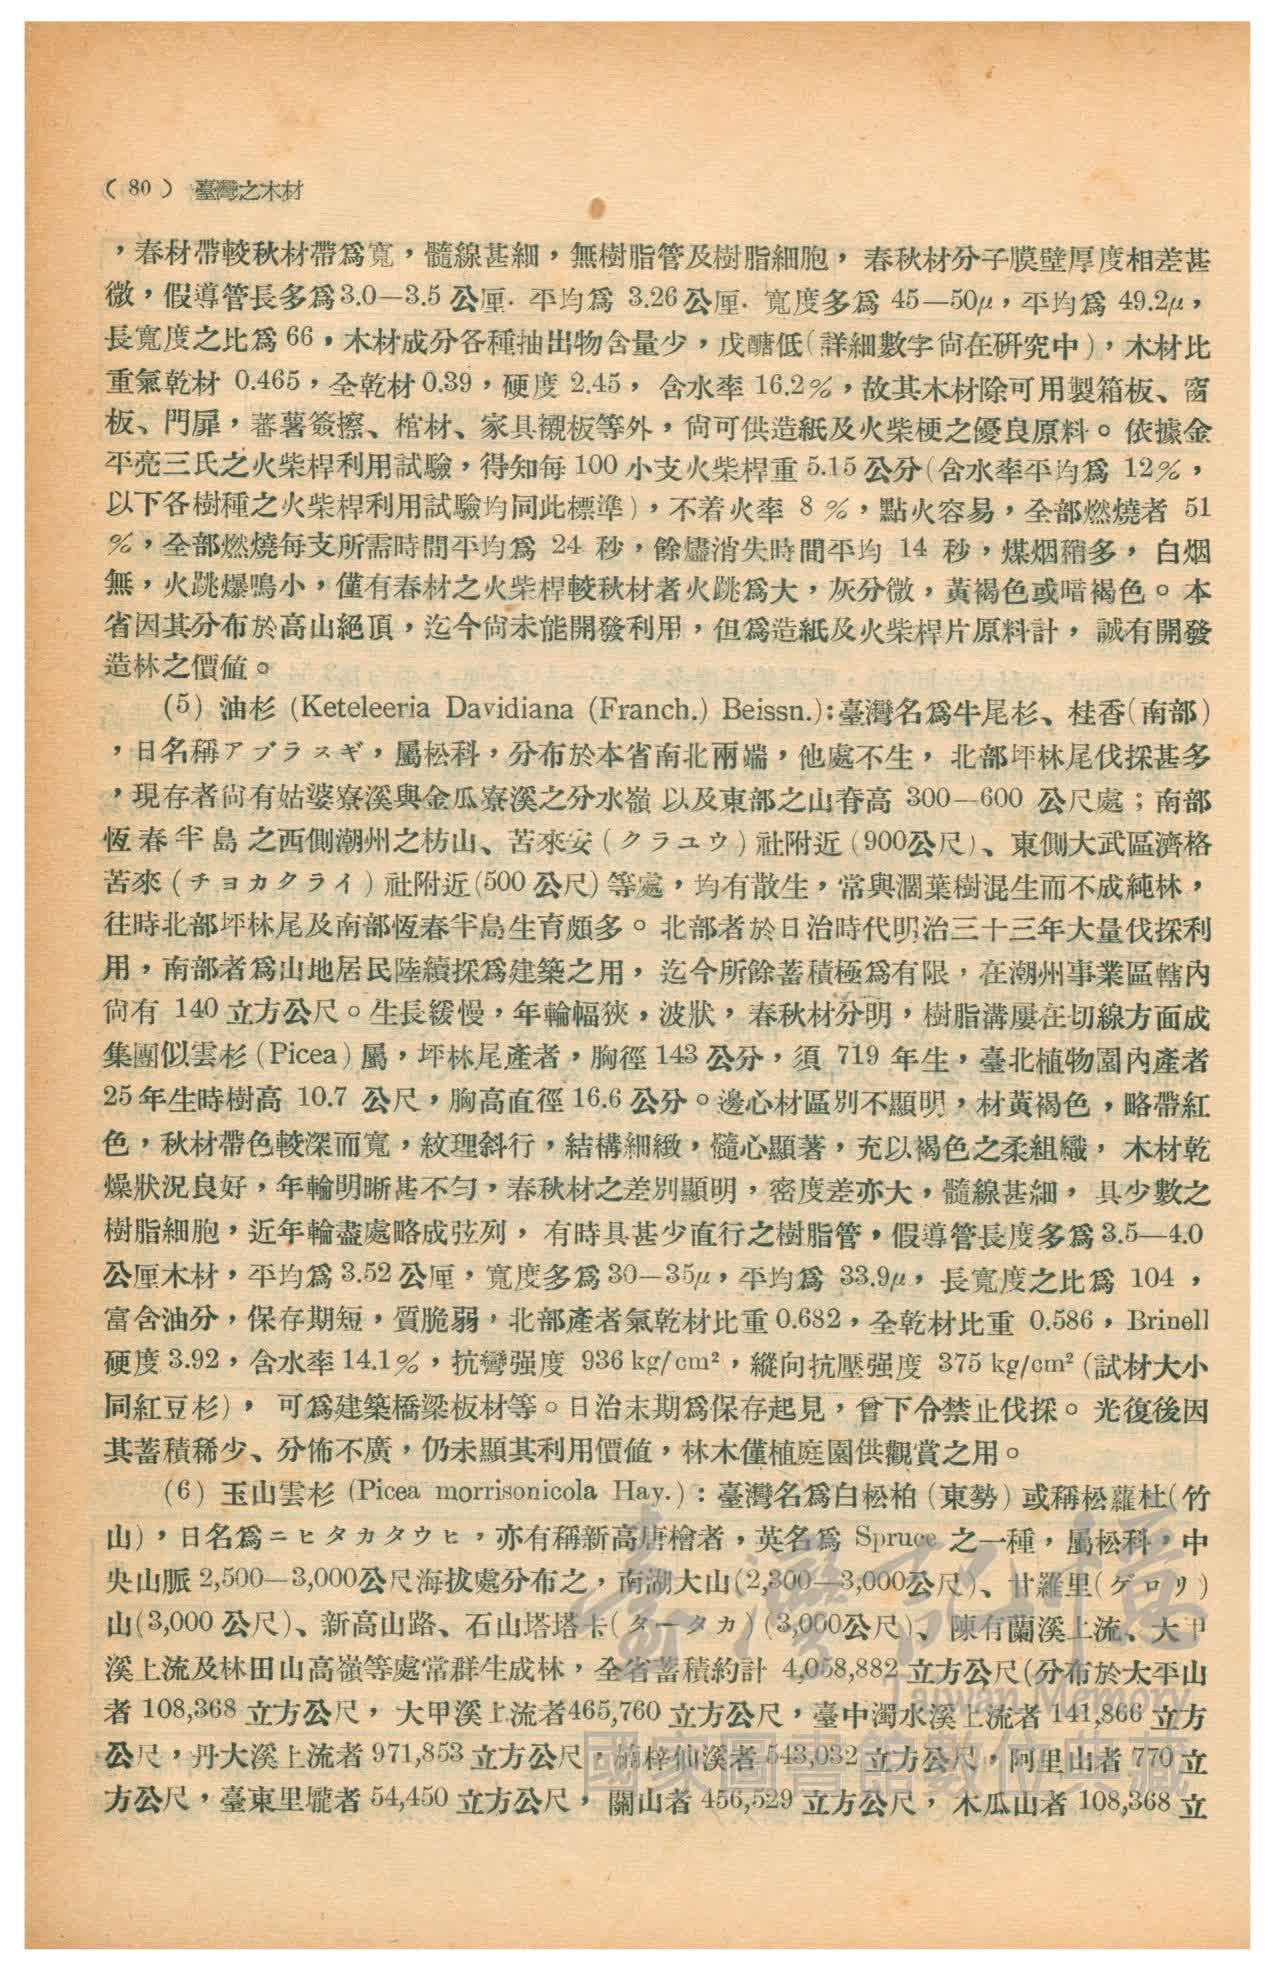 ( 80 ) 臺灣之木材
，春材帶較秋材帶爲寬，髓線甚細，無樹脂管及樹脂細胞， 春秋材分子膜壁厚度相差甚
微，假導管長多爲3.0—3.5 公厘. 平均爲 3.26公厘. 寬度多爲 45—50μ，平均爲 49.2μ，
長寬度之比爲 66，木材成分各種抽出物含量少，戊醣低(詳細數字尙在硏究中)，木材比
重氣乾材 0.465，全乾材0.39，硬度 2.45， 含水率 16.2%，故其木材除可用製箱板、窗
板、門扉，蕃薯簽擦、棺材、家具襯板等外，尙可供造紙及火柴梗之優良原料。依據金
平亮三氏之火柴桿利用試驗，得知每 100 小支火柴桿重 5.15 公分(含水率平均爲 12%，
以下各樹種之火柴桿利用試驗均同此標準)，不着火率 8 %，點火容易，全部燃燒者 51
%，全部燃燒每支所需時間平均爲 24 秒，餘燼消失時間平均 14 秒，煤烟稍多， 白烟
無，火跳爆鳴小，僅有春材之火柴桿較秋材者火跳爲大，灰分微，黃褐色或暗褐色。本
省因其分布於高山絕頂，迄今尙未能開發利用，但爲造紙及火柴桿片原料計， 誠有開發
造林之價値。
(5) 油杉 (Keteleeria Davidiana (Franch.) Beissn.):臺灣名爲牛尾杉、桂香(南部)
，日名稱アブラスギ，屬松科，分布於本省南北兩端，他處不生， 北部坪林尾伐採甚多
，現存者尙有姑婆寮溪與金瓜寮溪之分水嶺以及東部之山脊高 300—600 公尺處；南部
恆春半島之西側潮州之枋山、苦來安(クラユウ)社附近(900公尺)、東側大武區濟格
苦來(チヨカクライ)社附近(500公尺)等處，均有散生，常與濶葉樹混生而不成純林，
往時北部坪林尾及南部恆春半島生育頗多。北部者於日治時代明治三十三年大量伐採利
用，南部者爲山地居民陸續採爲建築之用， 迄今所餘蓄積極爲有限，在潮州事業區轄內
尙有 140 立方公尺。生長緩慢，年輪幅狹，波狀， 春秋材分明，樹脂溝屢在切線方面成
集團似雲杉(Picea)屬，坪林尾產者，胸徑 143 公分，須 719 年生，臺北植物園內產者
25年生時樹高 10.7 公尺，胸高直徑 16.6 公分。邊心材區別不顯明，材黃褐色，略帶紅
色，秋材帶色較深而寬，紋理斜行，結構細緻，髓心顯著，充以褐色之柔組織， 木材乾
燥狀況良好，年輪明晰甚不勻，春秋材之差別顯明，密度差亦大，髓線甚細， 具少數之
樹脂細胞，近年輪盡處略成弦列， 有時具甚少直行之樹脂管，假導管長度多爲3.5—4.0
公厘木材，平均爲3.52公厘，寬度多爲30—35μ，平均爲 33.9μ， 長寬度之比爲 104 ，
富含油分，保存期短，質脆弱，北部產者氣乾材比重0.682，全乾材比重 0.586，Brinell
硬度3.92，含水率14.1%，抗彎强度 936 kg/cm²，縱向抗壓强度 375 kg/cm² (試材大小
同紅豆杉)， 可爲建築橋梁板材等。日治末期爲保存起見，曾下令禁止伐採。光復後因
其蓄積稀少、分佈不廣，仍未顯其利用價値，林木僅植庭園供觀賞之用。
(6) 玉山雲杉 (Picea morrisonicola Hay.) : 臺灣名爲白松柏(東勢)或稱松蘿杜(竹
山)，日名爲ニヒタカタウヒ，亦有稱新高唐檜者，英名爲 Spruce 之一種，屬松科，中
央山脈2,500—3,000公尺海拔處分布之，南湖大山(2,300—3,000公尺)、甘羅里(ゲロリ)
山(3,000公尺)、新高山路、石山塔塔卡(タータカ)(3,000公尺)、陳有蘭溪上流、大甲
溪上流及林田山高嶺等處常群生成林，全省蓄積約計 4,058,882 立方公尺(分布於太平山
者 108,368 立方公尺， 大甲溪上流者465,760 立方公尺，臺中濁水溪上流者 141,866 立方
公尺，丹大溪上流者 971,853 立方公尺，楠梓仙溪者 543,032 立方公尺，阿里山者 770 立
方公尺，臺東里壠者 54,450 立方公尺， 關山者 456,529 立方公尺， 木瓜山者 108,368 立
臺灣記憶
Taiwan Memory
國家圖書館數位典藏